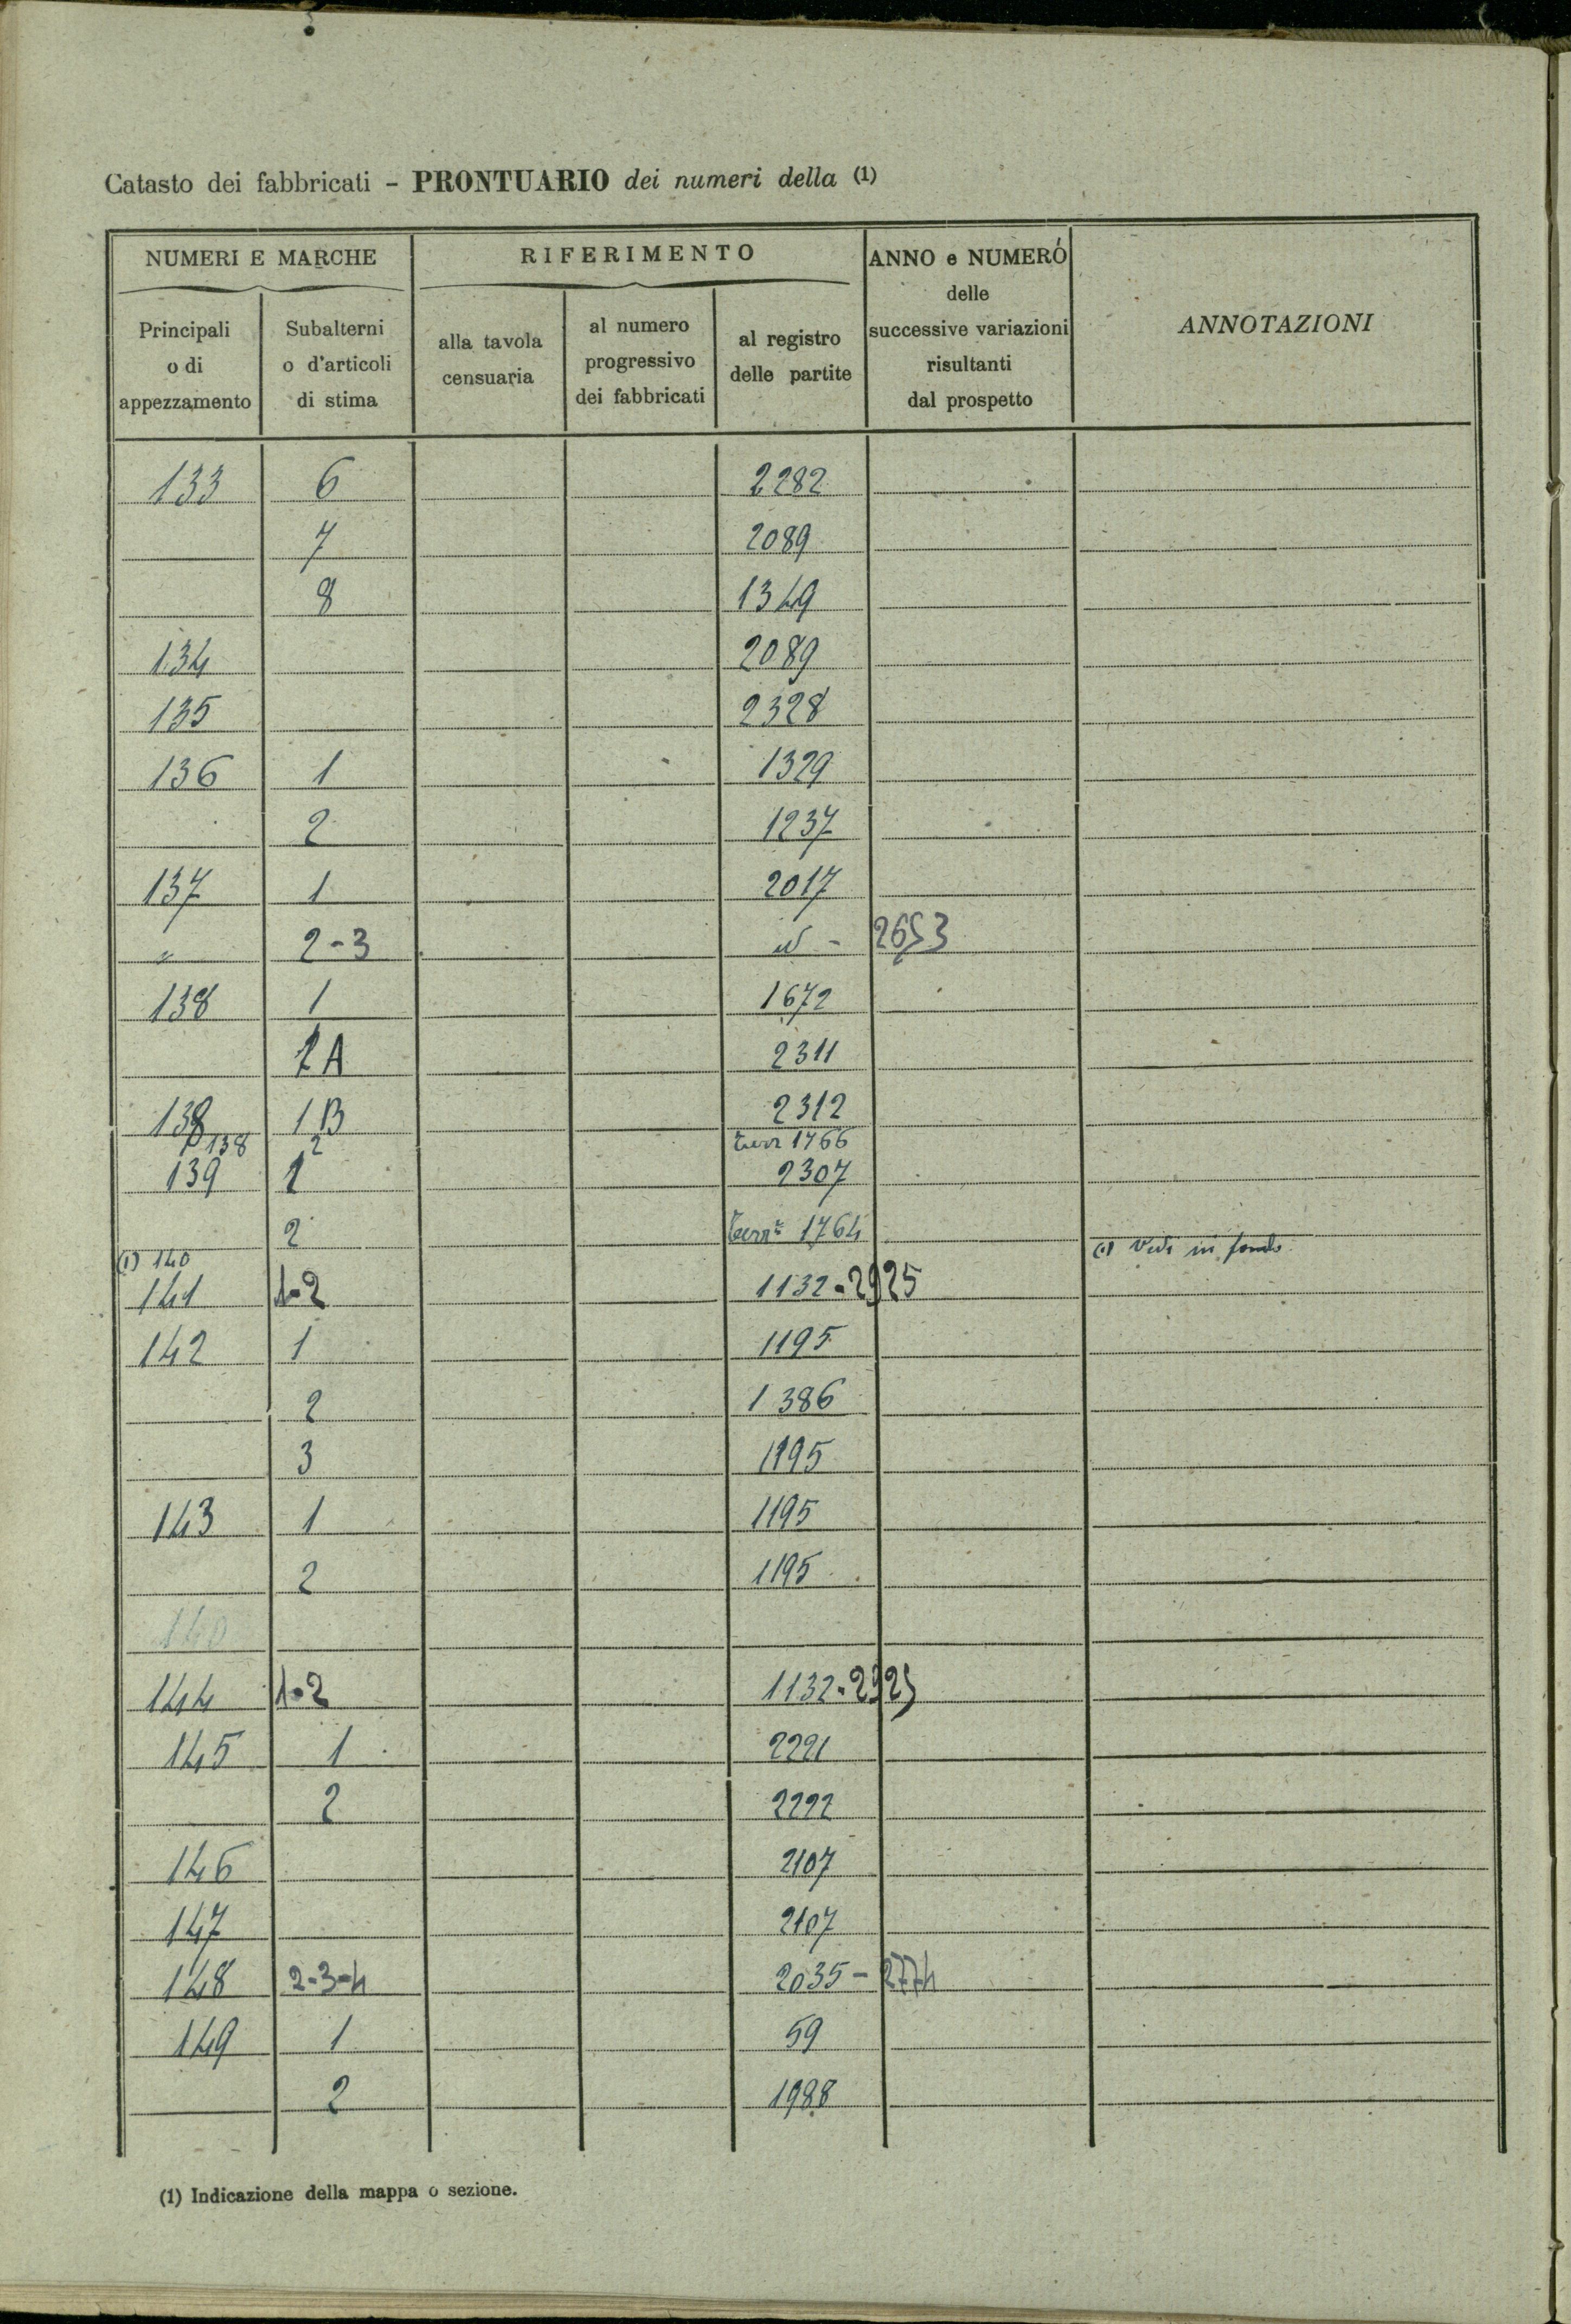 Catasto dei fabbricati - PRONTUARIO dei numeri della (1)
NUMERI E MARCHE
RIFERIMENTO
ANNO e NUMERO
delle
successive variazioni
risultanti
dal prospetto
ANNOTAZIONI
Principali
o di
appezzamento
Subalterni
o d'articoli
di stima
alla tavola
censuaria
al numero
progressivo
dei fabbricati
al registro
delle partite
133 6 2282
7 2089
8 1349
134 2089
135 2328
136 1 1329
2 1237
137 1 2017
" 2-3 id - 2653
138 1 1672
1A 2311
138 1B 2312
p 138 2 Terr 1766
139 1 2307
2 Terr 1764
(1) 140 (1) Vedi in fondo
141 1-2 1132-2925
142 1 1195
2 1386
3 1195
143 1 1195
2 1195
140
144 1-2 1132-2925
145 1 2221
2 2222
146 2107
147 2107
148 2-3-4 2035-2774
149 1 59
2 1988
(1) Indicazione della mappa o sezione.